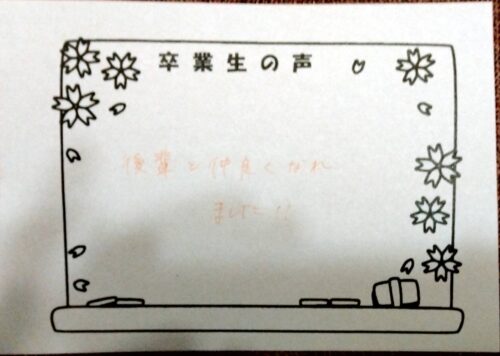 卒業生の声
後輩と仲良くなれ
ました!!